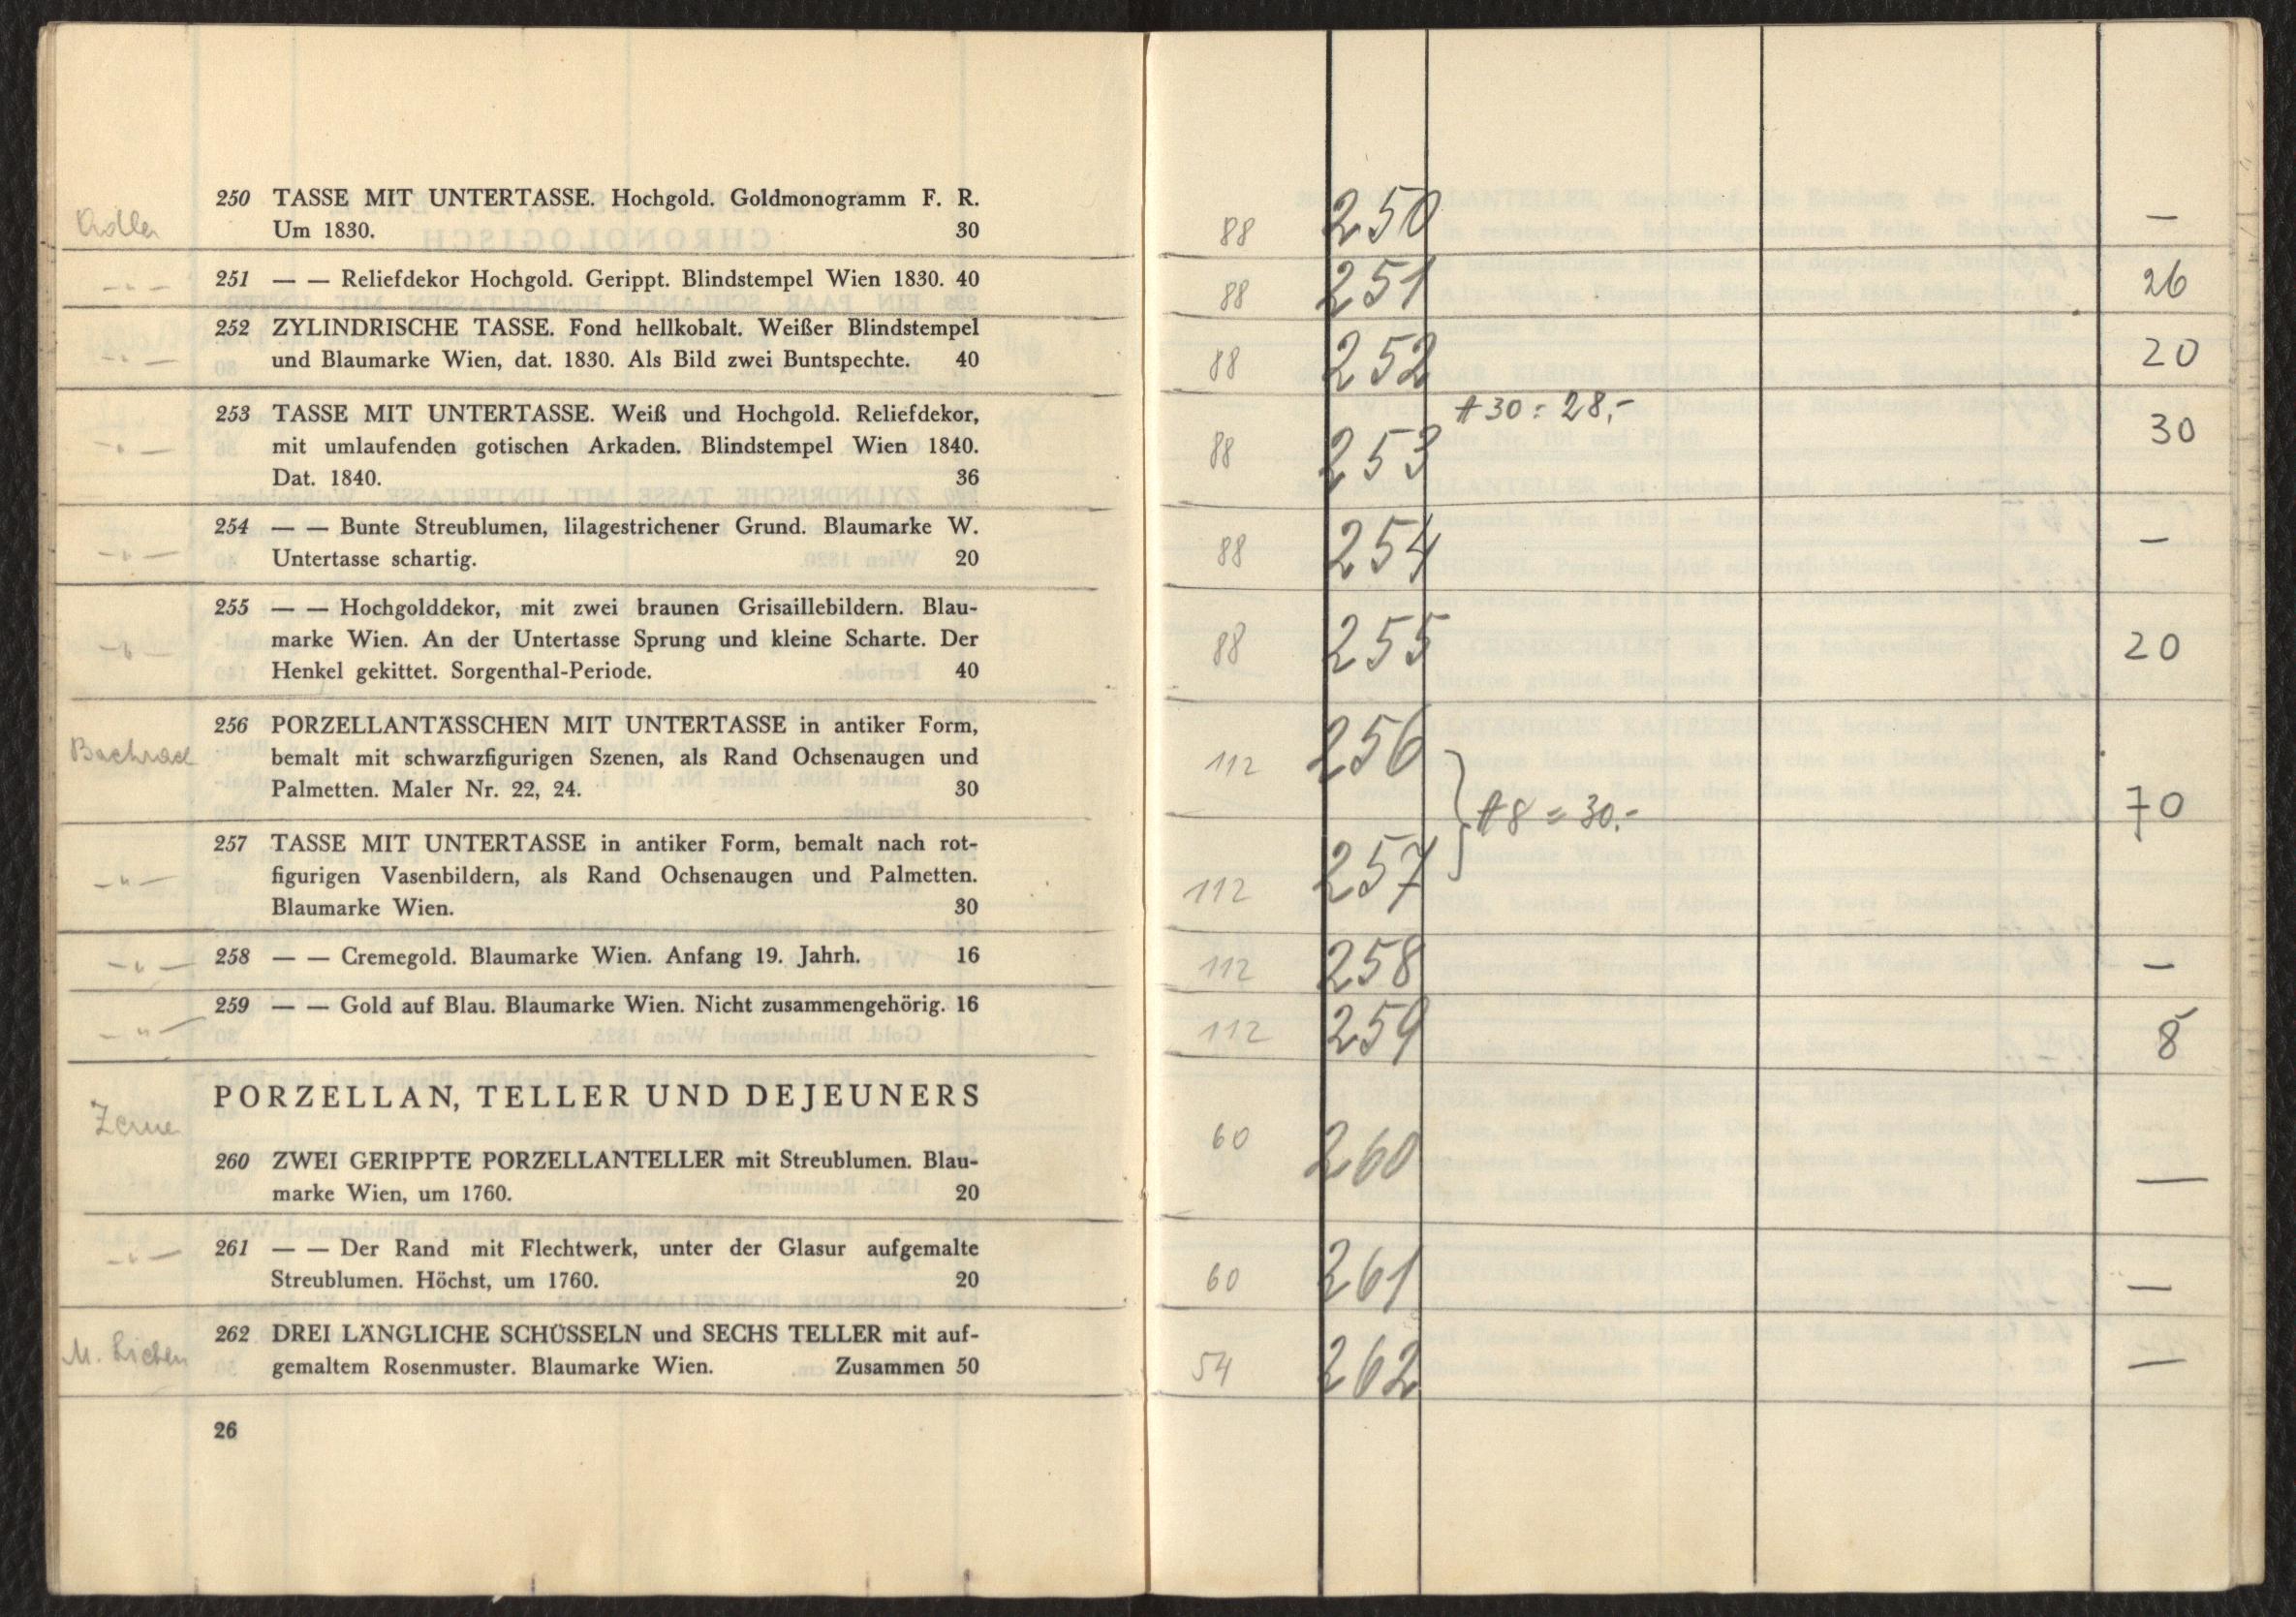 Adler
250 TASSE MIT UNTERTASSE. Hochgold. Goldmonogramm F. R.
Um 1830. 30
-"- 251 — — Reliefdekor Hochgold. Gerippt. Blindstempel Wien 1830. 40
252 ZYLINDRISCHE TASSE. Fond hellkobalt. Weißer Blindstempel
-"- und Blaumarke Wien, dat. 1830. Als Bild zwei Buntspechte. 40
253 TASSE MIT UNTERTASSE. Weiß und Hochgold. Reliefdekor,
-"- mit umlaufenden gotischen Arkaden. Blindstempel Wien 1840.
Dat. 1840. 36
254 — — Bunte Streublumen, lilagestrichener Grund. Blaumarke W.
-"- Untertasse schartig. 20
255 — — Hochgolddekor, mit zwei braunen Grisaillebildern. Blau-
-"- marke Wien. An der Untertasse Sprung und kleine Scharte. Der
Henkel gekittet. Sorgenthal-Periode. 40
256 PORZELLANTÄSSCHEN MIT UNTERTASSE in antiker Form,
Bachrad bemalt mit schwarzfigurigen Szenen, als Rand Ochsenaugen und
Palmetten. Maler Nr. 22, 24. 30
257 TASSE MIT UNTERTASSE in antiker Form, bemalt nach rot-
-"- figurigen Vasenbildern, als Rand Ochsenaugen und Palmetten.
Blaumarke Wien. 30
-"- 258 — — Cremegold. Blaumarke Wien. Anfang 19. Jahrh. 16
-"- 259 — — Gold auf Blau. Blaumarke Wien. Nicht zusammengehörig. 16
PORZELLAN, TELLER UND DEJEUNERS
260 ZWEI GERIPPTE PORZELLANTELLER mit Streublumen. Blau-
marke Wien, um 1760. 20
-"- 261 — — Der Rand mit Flechtwerk, unter der Glasur aufgemalte
Streublumen. Höchst, um 1760. 20
262 DREI LÄNGLICHE SCHÜSSELN und SECHS TELLER mit auf-
M. Lieben gemaltem Rosenmuster. Blaumarke Wien. Zusammen 50
26
88 250 —
88 251 26
88 252 20
30 = 28,-
88 253 30
88 254 —
88 255 20
112 256
8 = 30.- 70
112 257
112 258 —
112 259 8
60 260 —
60 261 —
54 262 —